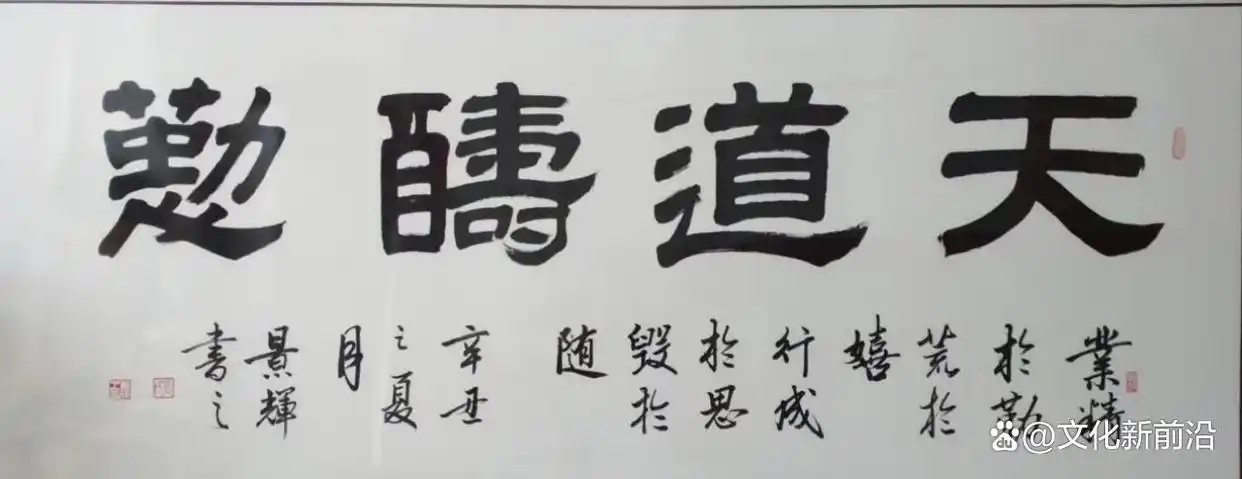 天道醻懃
業精
於勤
荒於
嬉
行成
於思
毀於
随
辛丑
之夏
月
景輝
書之
du @文化新前沿